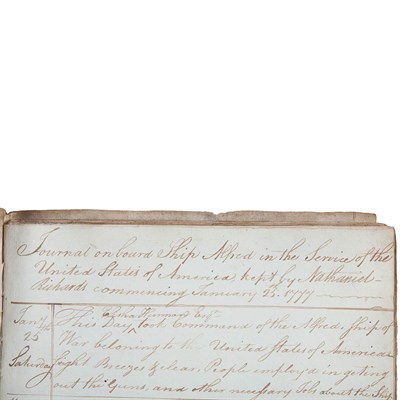 Journal on board Ship Alfred in the Service of the
United States of America, kept by Nathaniel
Richards commencing January 25. 1777
Jany
25
Saturday
This Day took Command of the Alfred, Ship of
War beloning to the United States of America
Light Breezes & clear. People employd in geting
out the Guns, and other necessary Jobs about the Ship